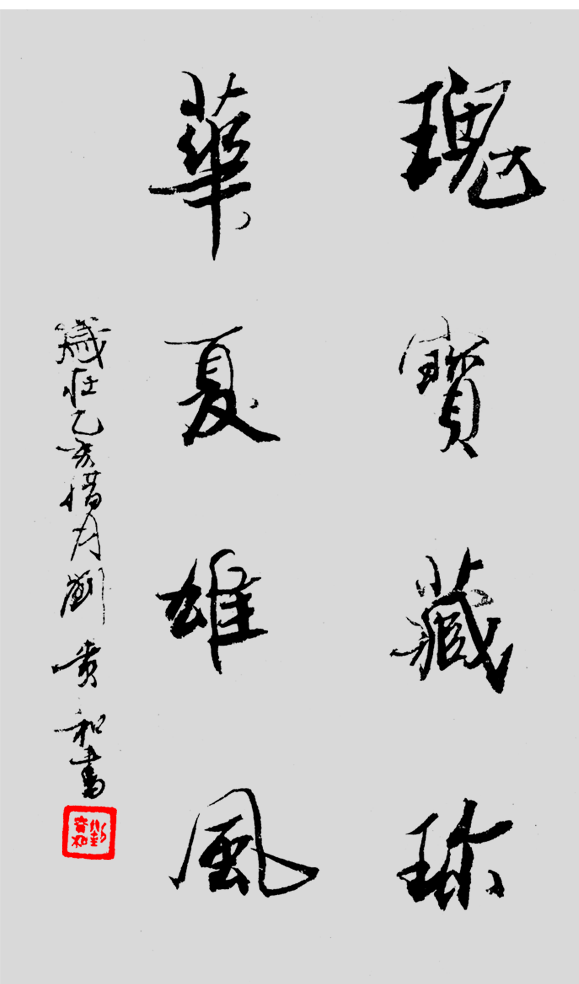 瑰寶藏珎
華夏雄風
歲在乙亥惜月劉貴和書
劉貴和